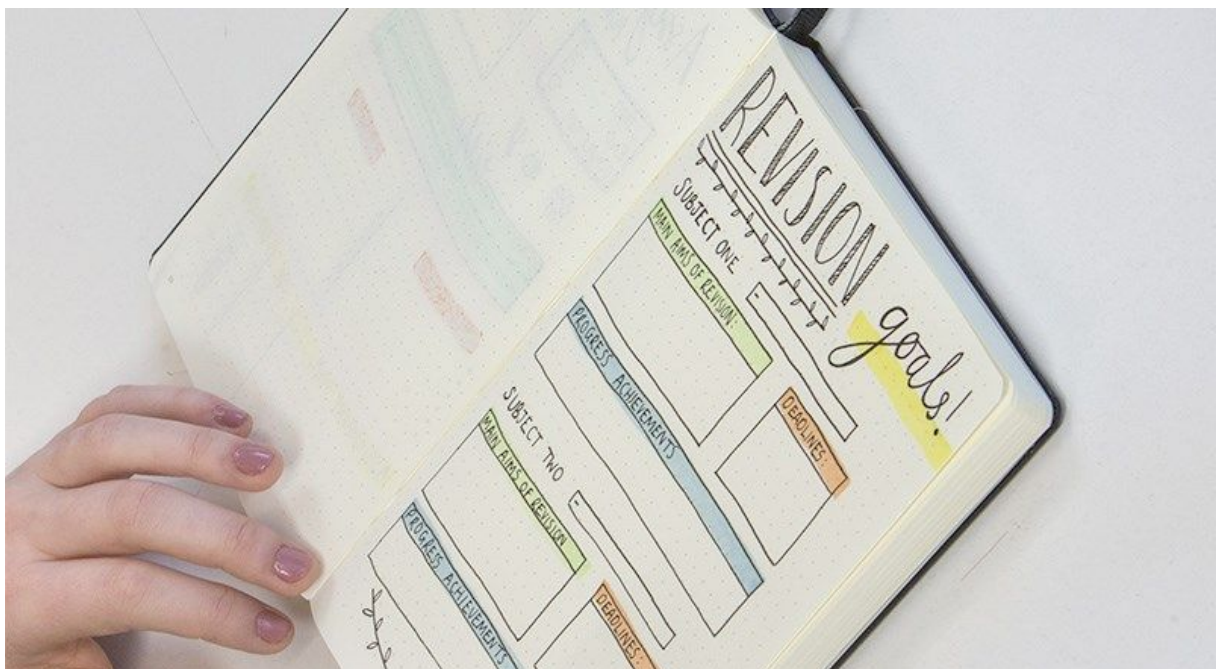 REVISION goals!
SUBJECT ONE
MAIN AIMS OF REVISION:
DEADLINES:
PROGRESS ACHIEVEMENTS
SUBJECT TWO
MAIN AIMS OF REVISION
DEADLINES:
PROGRESS ACHIEVEMENTS